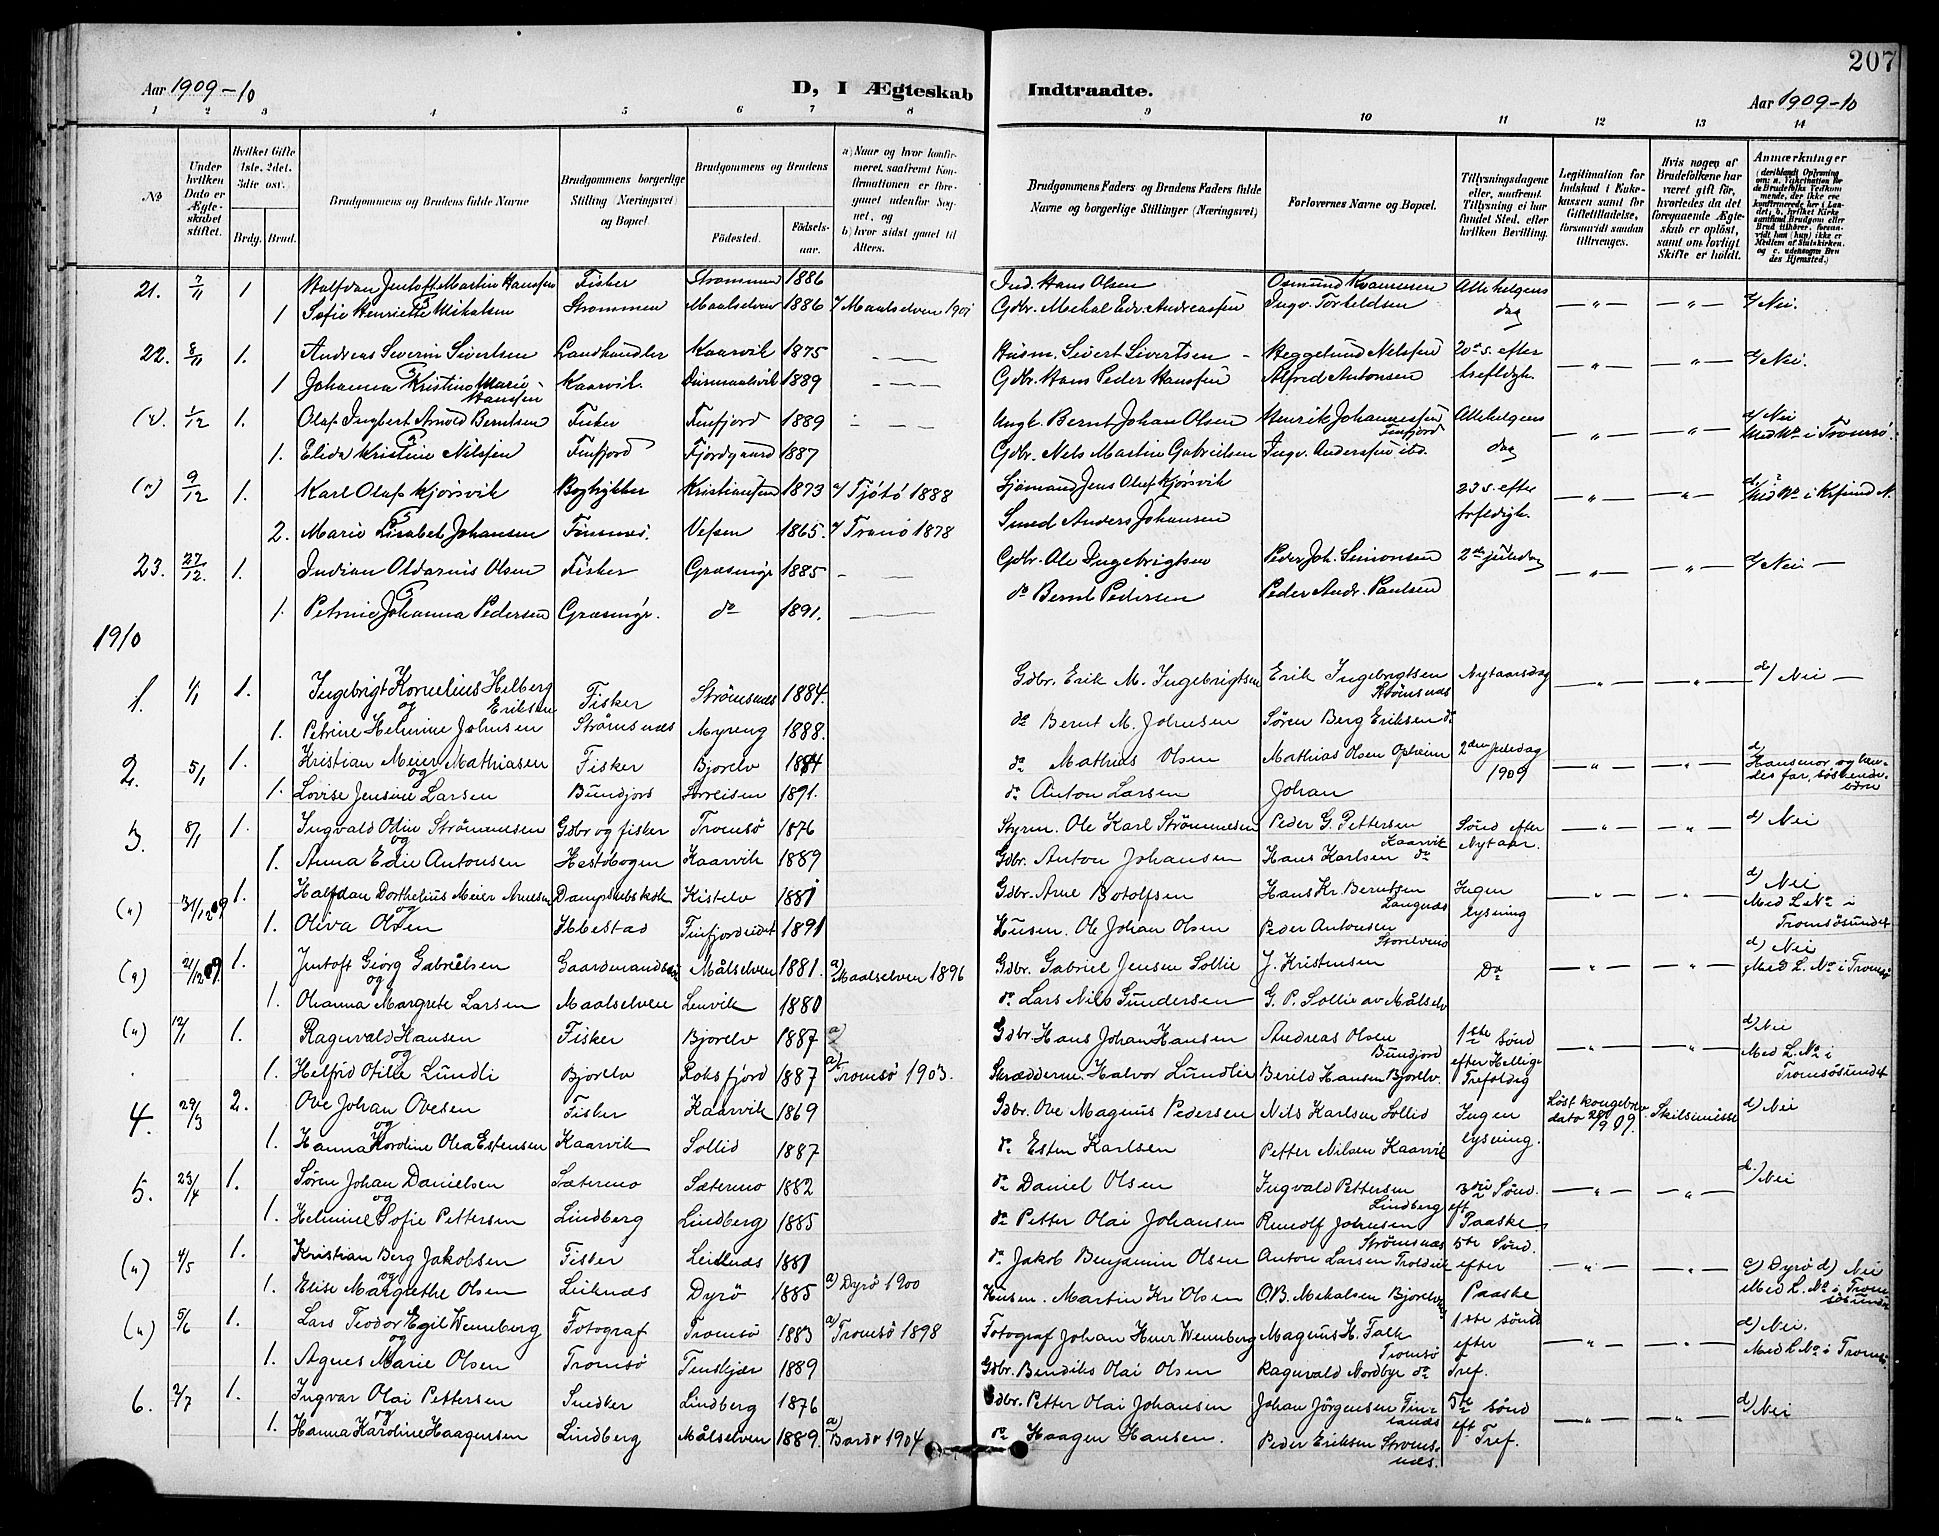 207
Aar 1909-10 D, I Ægteskab Indtraadte. Aar 1909-10
1 2 3 4 5 6 7 8 9 10 11 12 13 14
No
Under hvilken Dato er Ægteskabet stiftet.
Hvilket Gifte (1ste, 2det, 3die osv.
Brdg. Brud.
Brudgommens og Brudens fulde Navne
Brudgommens borgerlige Stilling (Næringsvei) og Bopæl.
Brudgommens og Brudens
Fødested. Fødselsaar.
a) Naar og hvor konfirmeret, saafremt Konfirmationen er foregaaet udenfor Sognet, og
b) hvor sidst gaaet til Alters.
Brudgommens Faders og Brudens Faders fulde Navne og borgerlige Stillinger (Næringsvei)
Forlovernes Navne og Bopæl.
Tillysningsdagene eller, saafremt Tillysning ei har fundet Sted, efter hvilken Bevilling.
Legitimation for Indskud i Enkekassen samt for Giftetilladelse, forsaavidt saadan tiltrænges.
Hvis nogen af Brudefolkene har været gift før, hvorledes da det foregaaende Ægteskab er opløst, samt om lovligt Skifte er holdt.
Anmærkninger
21. 7/11 1 Halfdan Jentoft Martin Hansen Fisker Strømmen 1886 Ind. Hans Olsen Osmund Kvamesen Allehelgens
1 Sofie Henriette Mikalsen Strømmen Maalselven 1886 a/ Maalselven 1901 Gdbr. Mekal Edv. Andreassen Ingv. Torkeldsen dag — " — — " — d/ Nei.
22. 8/11 1. Andreas Severin Sivertsen Landhandler Kaarvik 1875 — " — Husm. Sivert Sivertsen Heggelund Nilssen 20de s. efter
1 Johanna Kristine Marie Hanssen Kaarvik. 1889 — " — Gdbr. Hans Peder Hanssen Alfred Antonsen trefldgh. — " — — " — d/ Nei.
(") 1/12 1. Olaf Ingbert Arnold Berntsen Fisker Finfjord 1889 Ungk. Bernt Johan Olsen Henrik Johannessen Finfjord Allehelgens d/ Nei
1. Elida Kristine Nilssen Finfjord Fjordgaard 1887 Gdbr. Nels Martin Gabrielsen Ingv. Anderssen ibd. dag — " — — " — Med No i Tromsø.
(") 9/12 1. Karl Olaf Kjørsvik Bogtrykker Kristiansun 1873 a/ Tjøtø 1888 Sjømand Jens Olaf Kjørsvik 23 s. efter — " — — " —
2. Marie Lisabet Johansen Finsnes. Vefsen 1865. a/ Tranø 1878 Smed Anders Johansen trfldigh.
23. 27/12. 1. Indian Oldarnis Olsen Fisker Græsmyr 1885 — " — Gdbr. Ole Ingebrigtsen Peder Joh. Simonsen 2den juledag — " — — " — d/ Nei. —
1. Petrine Johanna Pedersen Græsmyr. do 1891. do Bernt Pedersen Peder Andr. Paulsen
1910
1. 1/1 1. Ingebrigt Kornelius Helberg Eriksen Fisker Strømsnæs 1884. Gdbr. Erik M. Ingebrigtsen Erik Ingebrigtsen Strømsnæs Nytaarsdag — " — — " — d/ Nei —
og
1. Petrine Helmine Johnsen Strømsnæs Myreng 1888. do Bernt M. Johnsen Søren Berg Eriksen do
2. 5/1 1. Kristian Meier Mathiasen Fisker Bjorelv 1884 do Mathias Olsen Mathias Olsen Opheim 2den Juledag 1909 — " — — " — d/ Hansmor og hendes far, søskendebørn
og
1. Lovise Jensine Larsen Bundjord Sørreisen 1891. do Anton Larsen Johan
3. 8/1 1. Ingvald Odin Strømmesen Gdbr og fisker Tromsø 1876 Styrm. Ole Karl Strømmesen Peder G. Pettersen Kaarvik Sønd efter Nytaar. — " — — " — d/ Nei
og
1. Anna Edie Antonsen Hestbogen Kaarvik 1889 Gdbr. Anton Johansen Hans Karlsen do
(") 31/12 09 1. Halfdan Dorthelius Meier Arnesen Dampskibskok Kistelv 1881 Gdbr. Arne Botolfsen Hans Kr. Berntsen Langnæs Ingen lysning — " — — " — d/ Nei Med L. No i Tromsøsundet
og
1. Oliva Olsen Finfjordeidet 1891 Husm. Ole Johan Olsen Peder Antonsen
(") 21/12 09. 1. Jentoft Georg Gabrielsen Gaardmandssøn Målselven 1881. a) Maalselven 1896 Gdbr. Gabriel Jensen Sollie J. Kristensen Do — " — — " — d/ Nei Med L. No i Tromsø
og
1. Ohanna Margrete Larsen Maalselven Lenvik 1880 do Lars Nils Gundersen G. P. Sollie av Målselv
(") 12/1 1. Ragnvald Hansen Fisker Bjorelv 1887 a) Gdbr. Hans Johan Hansen Andreas Olsen Bundjord 1ste sønd efter Hellig Trefoldig — " — — " — d/ Nei Med L. No i Tromsøsundet
og
1. Helfrid Otilie Lundli Bjorelv Roksfjord 1887 a) Tromsø 1903. Skrædderm. Halvor Lundlie Berild Hansen Bjorelv.
4. 29/3 2. Ove Johan Ovesen Fisker Kaarvik 1869 Gdbr. Ove Magnus Pedersen Nils Karlsen Sollid Ingen lysning. Løst kongebrev dato 28/9 09. Skilsmisse d/ Nei
og
1. Hanna Karoline Olea Estensen Kaarvik Sollid 1887 do Esten Karlsen Petter Nilsen Kaarvik
5. 23/4 1. Søren Johan Danielsen Sætermo Sætermo 1882 do Daniel Olsen Ingvald Pettersen Lindberg 3die Sønd. eft Paaske — " — — " — d/ Nei
og
1. Helmine Sofie Pettersen Lindberg Lindberg 1885 do Petter Olai Johansen Runolf Johnsen Strømsnæs
(") 4/5 1. Kristian Berg Jakobsen Fisker Leiknæs 1881 do Jakob Benjamin Olsen Anton Larsen Troldvik 5te Sønd. efter Paaske — " — — " — c) Dyrø d) Nei Med L. No i Tromsøsundet
og
1. Elise Margrethe Olsen Leiknæs Dyrø 1885 a) Dyrø 1900 Husm. Martin Kr Olsen O.B. Mekalsen Bjorelv
(") 5/6 1. Lars Teodor Egil Wennberg Fotograf Tromsø 1883 a) Tromsø 1898 Fotograf Johan Iver Wennberg Magnus H. Falk Tromsø 1ste sønd efter Tref. — " — — " — d/ Nei. Med L. No i Tromsø
og
1. Agnes Marie Olsen Tromsø Finskjær 1889 Gdbr. Bendiks Olai Olsen Ragnvald Nordbye do
6. 2/7 1. Ingvar Olai Pettersen Snedker Lindberg 1876 Gdbr. Petter Olai Johansen Johan Jörgensen Finlands 5te sønd eft Tref. — " — — " — d/ Nei
og
1. Hanna Karoline Haagensen Lindberg Målselven 1889. a) Bardo 1904 do Haagen Hansen. Peder Eriksen Strømsnæs.